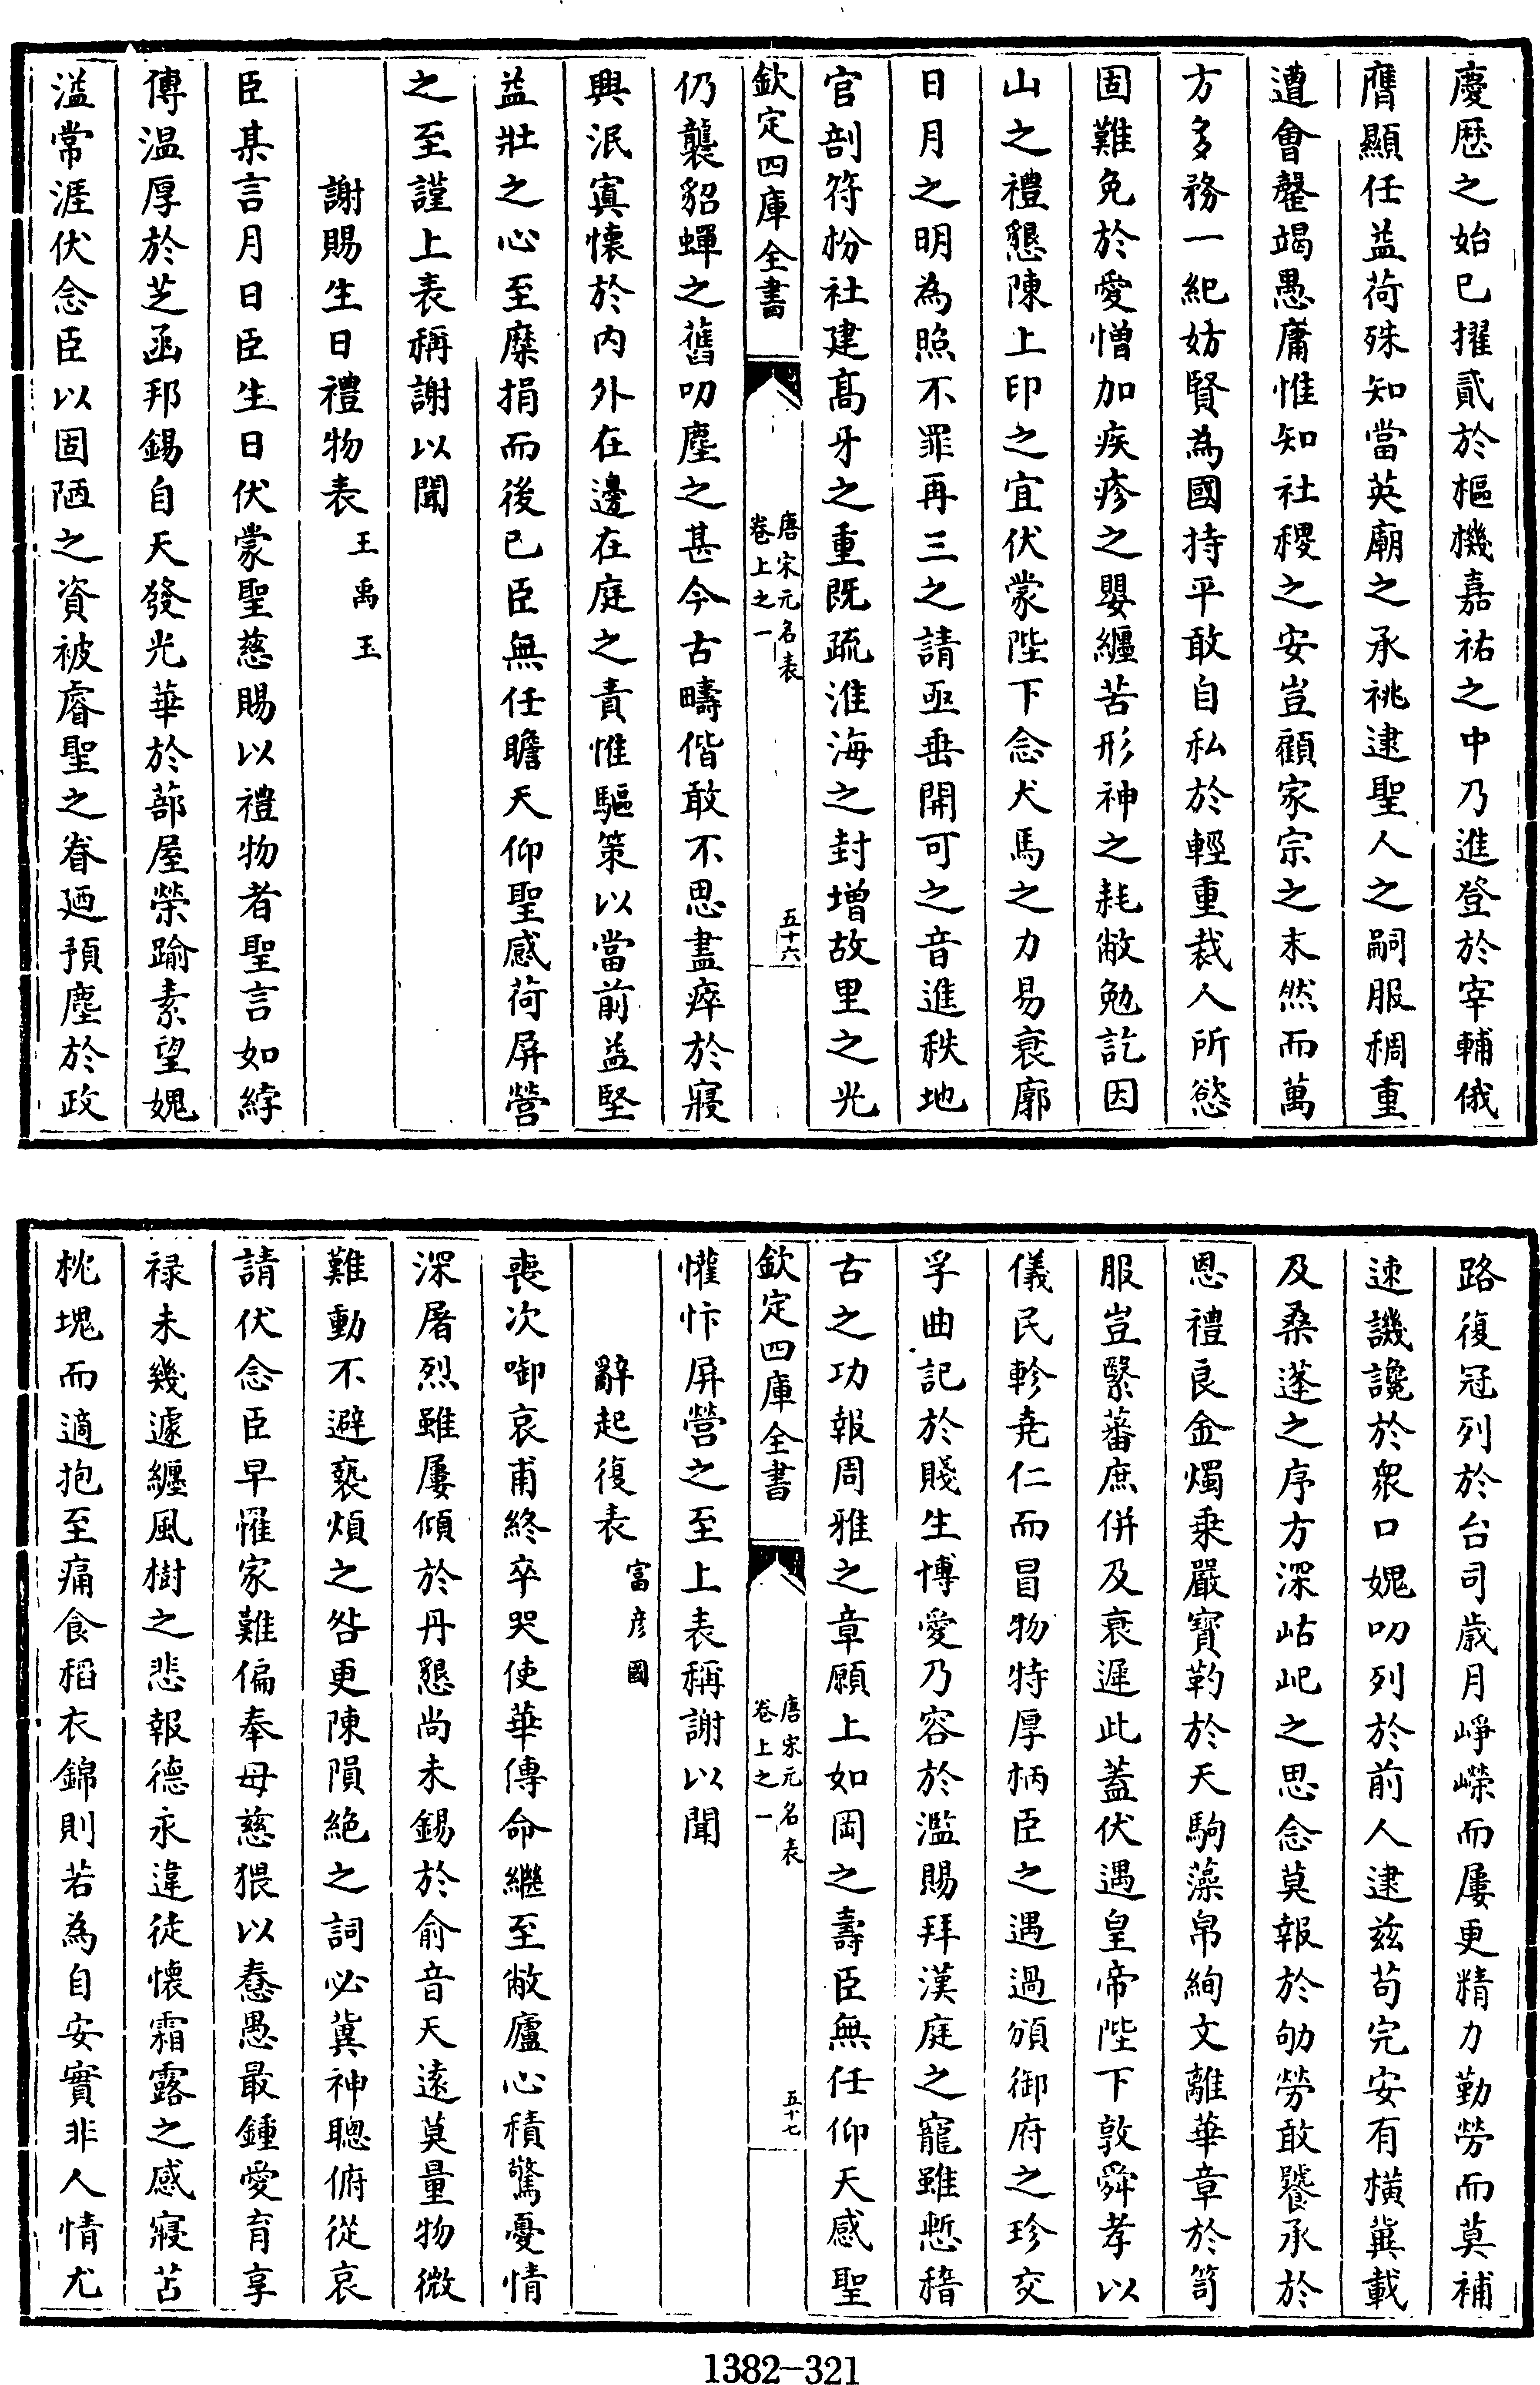 慶歴之始已擢貳於樞機嘉祐之中乃進登於宰輔俄
膺顯任益荷殊知當英廟之承祧逮聖人之嗣服稠重
遭會罄竭愚庸惟知社稷之安豈顧家宗之末然而萬
方多務一紀妨賢為國持平敢自私於輕重裁人所慾
固難免於愛憎加疾疹之嬰纏苦形神之耗敝勉訖因
山之禮懇陳上印之宜伏蒙陛下念犬馬之力易衰廓
日月之明為照不罪再三之請亟垂開可之音進秩地
官剖符枌社建髙牙之重既疏淮海之封増故里之光
欽定四庫全書
唐宋元名表
卷上之一
五十六
仍襲貂蟬之舊叨塵之甚今古疇偕敢不思盡瘁於寢
興泯寘懷於内外在邊在庭之責惟驅策以當前益堅
益壯之心至糜捐而後已臣無任瞻天仰聖感荷屏營
之至謹上表稱謝以聞
謝賜生日禮物表
王禹玉
臣某言月日臣生日伏蒙聖慈賜以禮物者聖言如綍
傳温厚於芝函邦錫自天發光華於蔀屋榮踰素望媿
溢常涯伏念臣以固陋之資被睿聖之眷廼預塵於政
路復冠列於台司歳月崢嶸而屢更精力勤勞而莫補
速譏讒於衆口媿叨列於前人逮兹苟完安有横冀載
及桑蓬之序方深岵屺之思念莫報於劬勞敢饕承於
恩禮良金燭乗嚴寳靮於天駒藻帛絢文離華章於笥
服豈緊蕃庶併及衰遲此蓋伏遇皇帝陛下敦舜孝以
儀民軫堯仁而冒物特厚柄臣之遇過頒御府之珍交
孚曲記於賤生博愛乃容於濫賜拜漢庭之寵雖慙稽
古之功報周雅之章願上如岡之壽臣無任仰天感聖
欽定四庫全書
唐宋元名表
卷上之一
五十七
懽忭屏營之至上表稱謝以聞
辭起復表
富彦國
喪次啣哀甫終卒哭使華傳命繼至敝廬心積驚憂情
深屠烈雖屢傾於丹懇尚未錫於俞音天逺莫量物微
難動不避䙝煩之咎更陳隕絶之詞必冀神聰俯從哀
請伏念臣早罹家難偏奉母慈猥以惷愚最鍾愛育享
禄未幾遽纏風樹之悲報徳永違徒懷霜露之感寢苫
枕塊而適抱至痛食稻衣錦則若為自安實非人情尤
1382-321